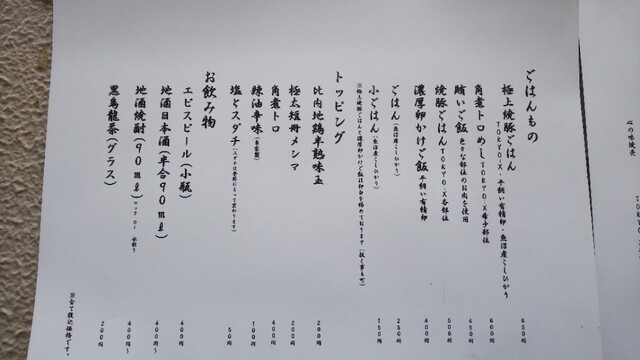 ごはんもの
極上焼豚ごはん TOKYO-X・平飼い有精卵・魚沼産こしひかり 650円
角煮トロめし TOKYO-X希少部位 600円
賄いご飯 色々な部位のお肉を使用 450円
焼豚ごはん TOKYO-X各部位 500円
濃厚卵かけご飯 平飼い有精卵 400円
ごはん(魚沼産こしひかり) 250円
小ごはん(魚沼産こしひかり) 150円
トッピング
比内地鶏半熟味玉 200円
極太短冊メンマ 200円
角煮トロ 400円
辣油辛味(自家製) 100円
塩とスダチ 50円
お飲み物
エビスビール(小瓶) 400円
地酒日本酒(半合90ml) 400円〜
地酒焼酎(90ml) ロック or 水割り 400円〜
黒烏龍茶(グラス) 200円
※全て税込価格です。
心の味製